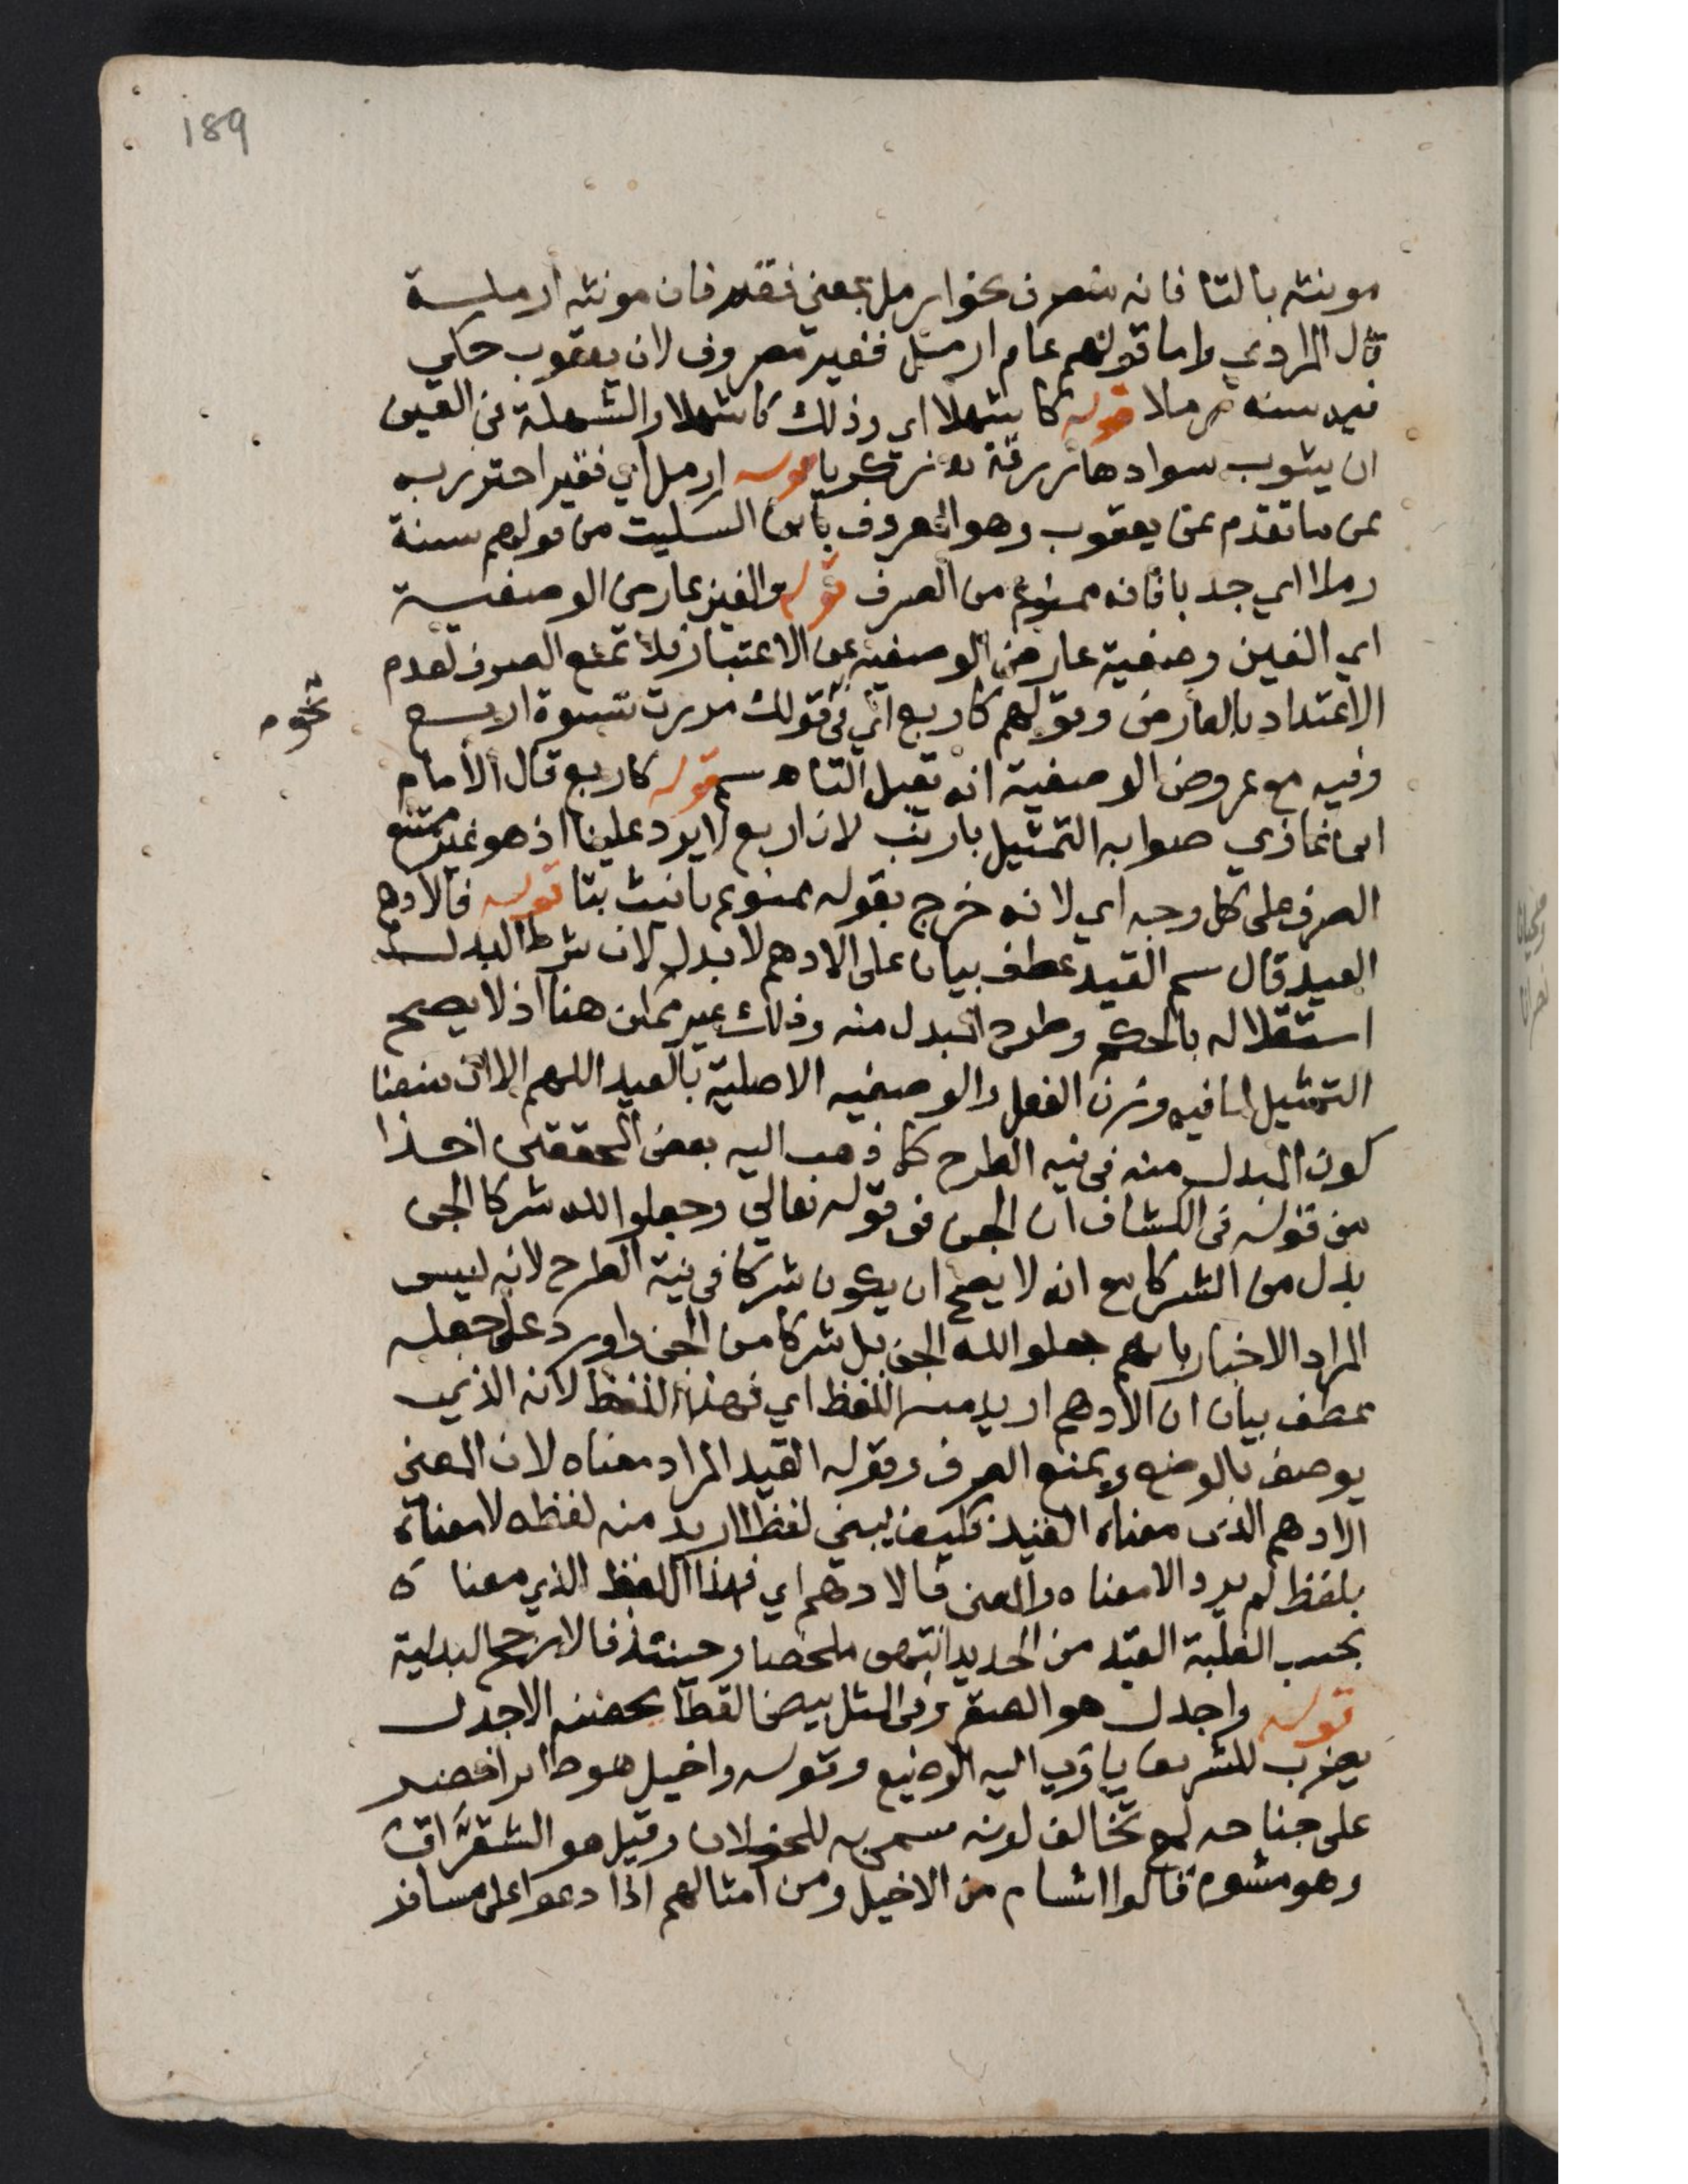 189
مونثه بالتا فانه منصرف نحو ارمل بمعني فقير فان مونثه ارملة
قال المرادي واما قولهم عام ارمل فغير مصروف لان يعقوب حكي
فيه سنه رملا قوله كاشهلا اي وذلك كاشهلا والشهلة في العين
ان يشوب سوادها زرقة اه زكريا قوله ارمل اي فقير احترز به
عن ما تقدم عن يعقوب وهو المعروف بابن السكيت من قولهم سنة
رملا اي جدبا فانه ممنوع من الصرف قوله والغين عارض الوصفية
اي الغين وصفية عارض الوصفية عن الاعتبار فلا تمنع الصرف لعدم
الاعتداد بالعارض وقولهم كاربع اي في قولك مررت بنسوة اربع
نحوه
وفيه مع عروض الوصفية انه يقبل التا اه سم قوله كاربع قال الامام
ابن غازي صوابه التمثيل بارنب لان اربع لا يرد علينا اذ هو غير ممتنع
الصرف على كل وجه اي لانه خرج بقوله ممنوع تانيث بتا قوله فالادهم
القيد قال سم القيد عطف بيان على الادهم لا بدل لان شرط البدل
استقلاله بالحكم وطرح المبدل منه وذلك غير ممكن هنا اذ لا يصح
التمثيل لما فيه وزن الفعل والوصفيه الاصلية بالقيد اللهم الا ان منعنا
كون المبدل منه في نيه الطرح كما ذهب اليه بعض المحققين اخذا
من قوله في الكشاف ان الجن في قوله تعالي وجعلوا لله شركا الجن
بدل من الشركا مع انه لا يصح ان يكون شركا في نية الطرح لانه ليس
المراد الاخبار بانهم جعلوا لله الجن بل شركا من الجن واورد على جعله
عطف بيان ان الادهم اريد منه اللفظ اي فهذا اللفظ لانه الذي
يوصف بالوضع ويمنع الصرف وقوله القيد المراد معناه لان المعنى
الادهم الذي معناه القيد فكيف يبين لفظا اريد منه لفظه لا معناه
بلفظ لم يرد الا معناه والمعنى فالادهم اي فهذا اللفظ الذي معناه
بحسب الغلبة القيد من الحديد انتهى ملخصا وحينئذ فالارجح البدلية
قوله واجدل هو الصقر وفي المثل بيض القطا يحضنه الاجدل
يضرب للشريف ياوي اليه الوضيع وقوله واخيل هو طاير اخضر
على جناحه لمع تخالف لونه سمي به للخيلان وقيل هو الشقراق
وهو مشوم قالوا اشام من الاخيل ومن امثالهم اذا دعوا على مسافر